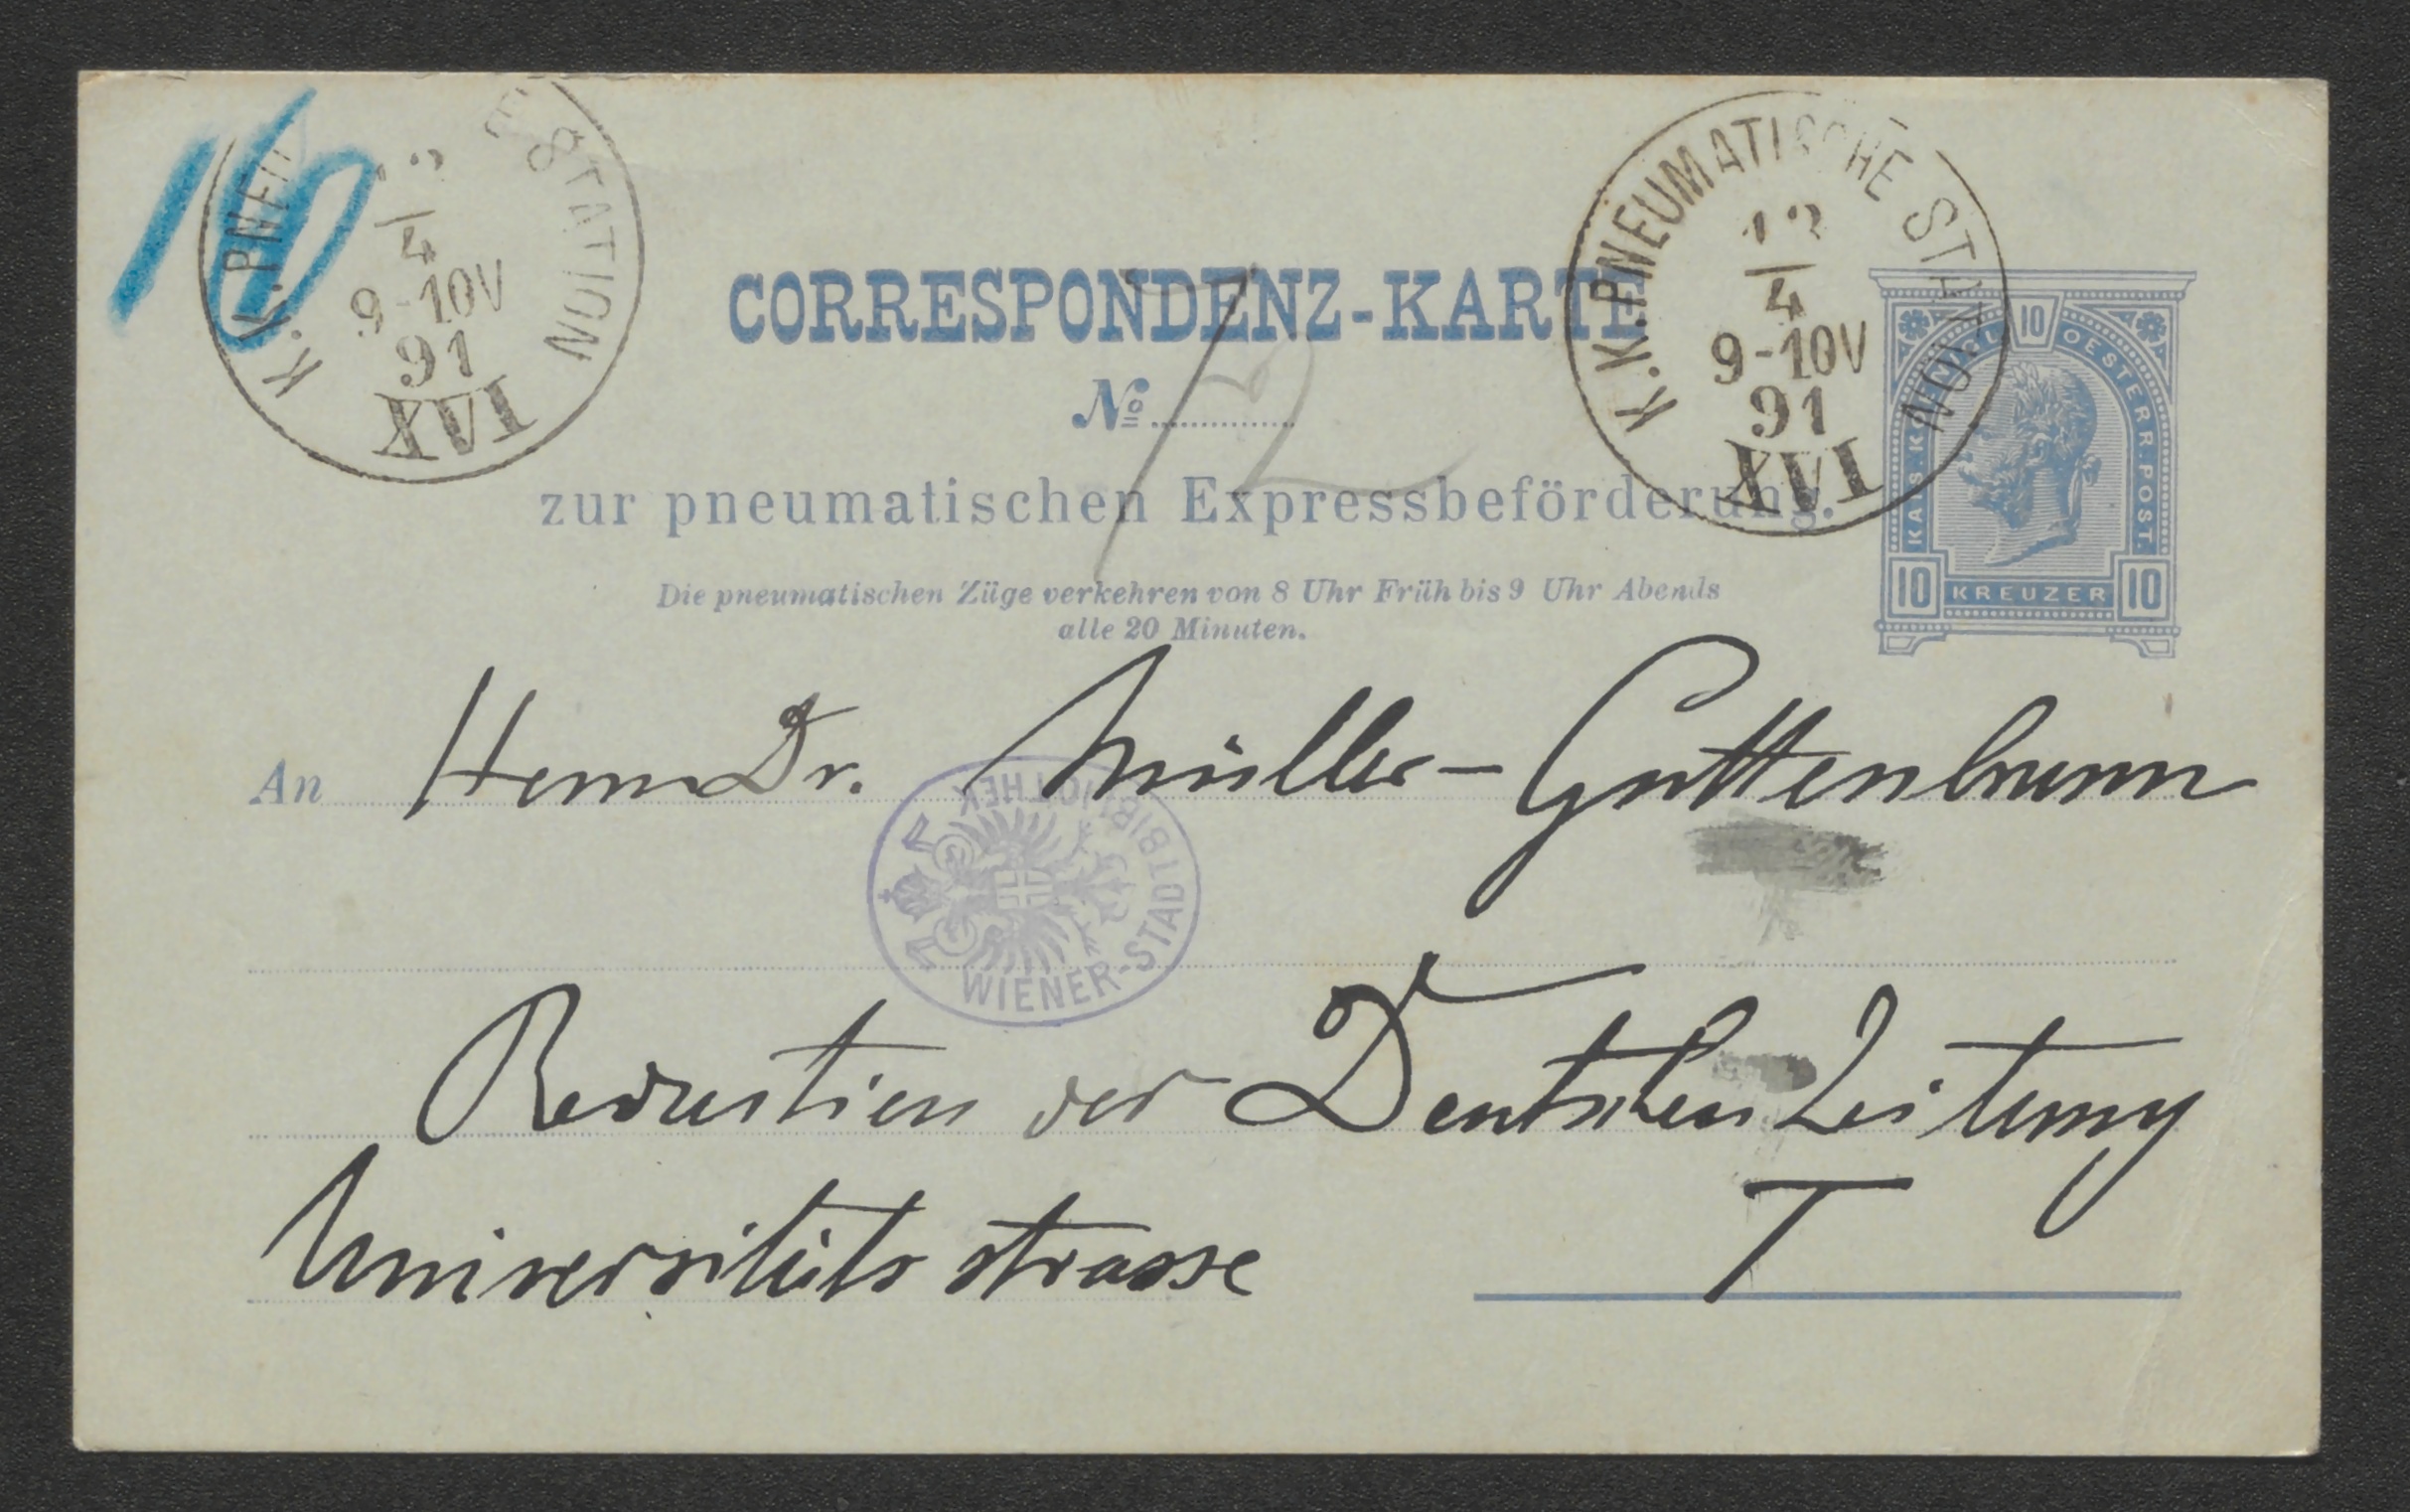 16
K.K. PNEU E STATION
4
9-10V
91
XVI
K.K. PNEUMATISCHE STATION
12
4
9-10V
91
XVI
CORRESPONDENZ-KARTE
No 12
zur pneumatischen Expressbeförderung.
Die pneumatischen Züge verkehren von 8 Uhr Früh bis 9 Uhr Abends
alle 20 Minuten.
10
KAIS. KÖNIGL. OESTERR. POST.
10 KREUZER 10
An Herrn Dr. Müller-Guttenbrunn
WIENER-STADTBIBLIOTHEK
Redaction der Deutschen Zeitung
Universitäts strasse I